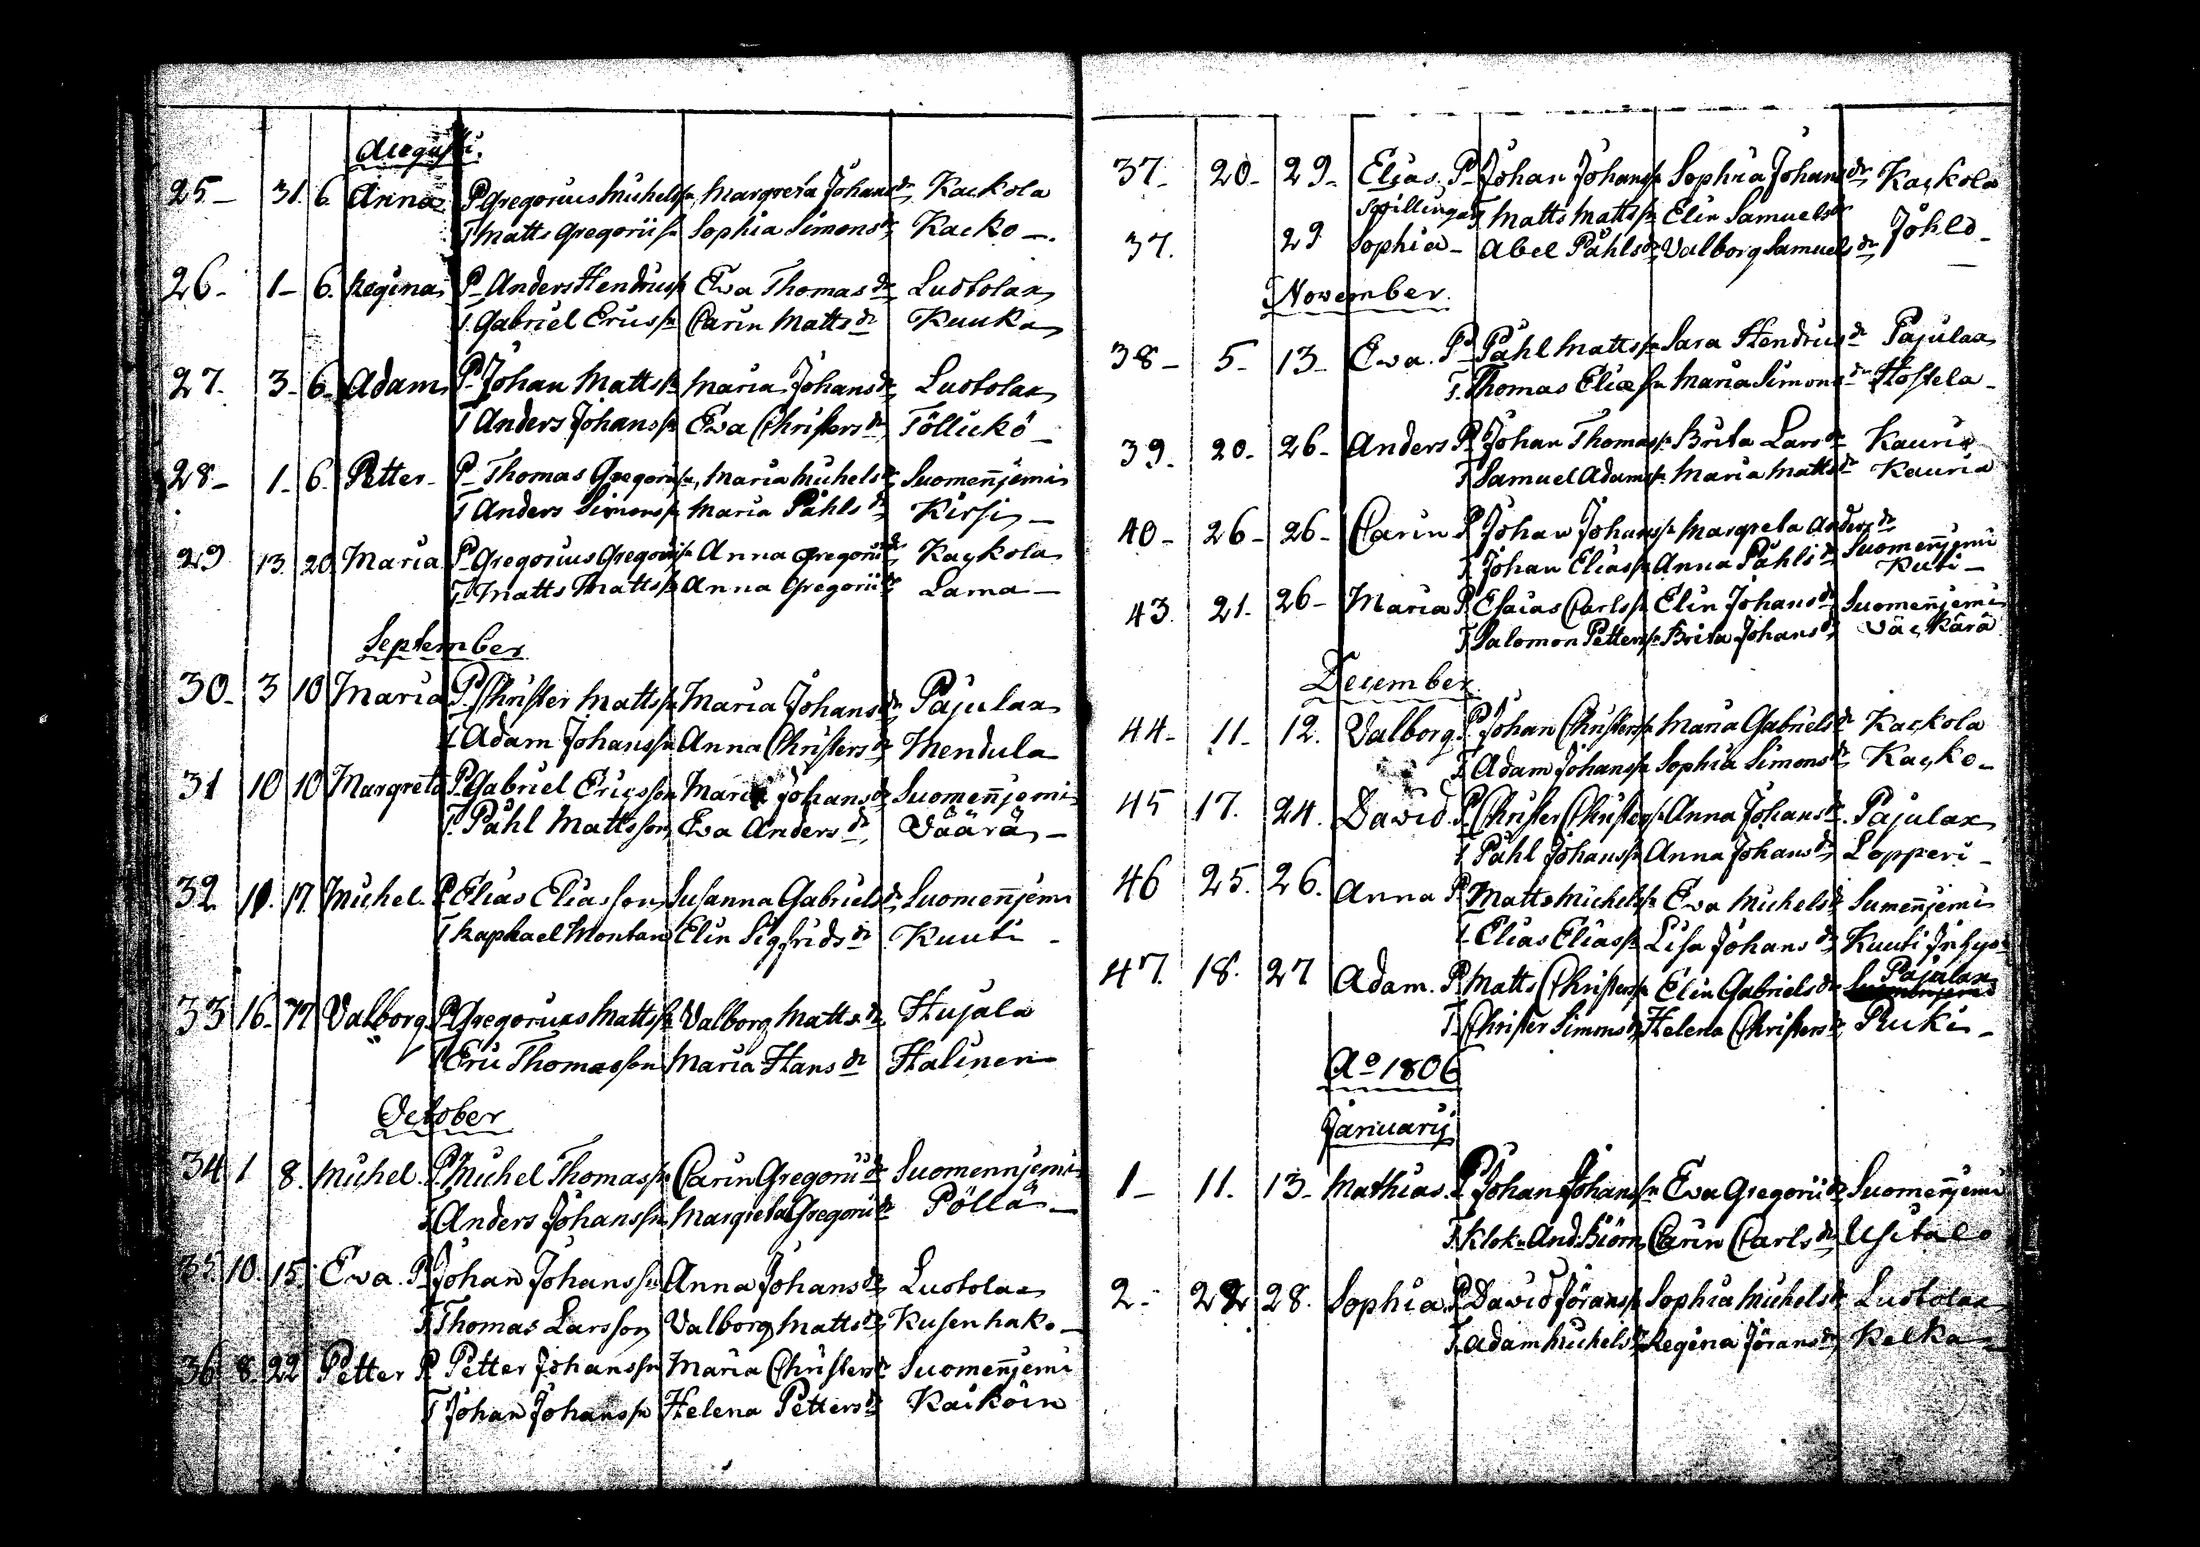 Augusti.
25- 31. 6. Anna P Gregorius Michelss:n Margreta Johansdr Kackola
T Matts Gregoriiss:n Sophia Simonsdr Kacko-.
26- 1- 6. Regina P Anders Hendricss:n Eva Thomasdr Luotolax
T. Gabriel Ericss:n Carin Mattsdr Kuuka
27. 3- 6- Adam P Johan Mattss:n Maria Johansdr Luotolax
T Anders Johanss:n Eva Christersdr Töllickö-
28- 1- 6. Petter- P Thomas Gregoriiss:n Maria Michelsdr Suomen̄jemi
T Anders Simonss:n Maria Påhlsdr Kirsi-
29 13. 20. Maria P Gregorius Gregoriiss:n Anna Gregoriidr Kackola
T Matts Mattss:n Anna Gregoriidr Lama-
September
30- 3 10 Maria P Christer Mattss:n Maria Johansdr Pajulax
T Adam Johanss:n Anna Christersdr Mendula
31 10 10 Margreta P. Gabriel Ericsson Maria Johansdr Suomen̄jemi
T. Påhl Mattsson Eva Andersdr Väärä-
32 10. 17. Michel- P Elias Eliasson Susanna Gabrielsdr Suomen̄jemi
T Raphael Montan Elin Sigfridsdr Kuuti-
33 16- 17 Valborg P Gregorius Mattss:n Valborg Mattsdr Hujala
T Eric Thomasson Maria Hansdr Halinen
October
34 1 8. Michel. P. Michel Thomass:n Carin Gregoriidr Suomennjemi
T Anders Johanss:n Margreta Gregoriidr Pöllä-
35. 10. 15. Eva. P Johan Johanss:n Anna Johansdr Luotolax
T Thomas Larsson Valborg Mattsdr Kusenhako-
36 8. 22 Petter P. Petter Johanss:n Maria Christersdr Suomen̄jemi
T Johan Johanss:n Helena Pettersdr Kaiköin
37- 20- 29- Elias P Johan Johanss:n Sophia Johansdr Kackola
Spillingar T Matts Mattss:n Elin Samuelsdr
37. 29 Sophia- Abel Påhlsdr Valborg Samuelsdr Jöhlö-
November.
38- 5- 13- Eva. P Påhl Mattss:n Sara Hendricsdr Pajulax
T. Thomas Eliæss:n Maria Simonsdr Hostela-
39- 20- 26- Anders P Johan Thomass:n Brita Larsdr Kauria
T Samuel Adamss:n Maria Mattsdr Kauria
40- 26- 26- Carin P Johan Johanss:n Margreta Andersdr
Suomen̄jemi
T Johan Eliass:n Anna Påhlsdr Kuti-
43. 21. 26- Maria P. Esaias Carlss:n Elin Johansdr Suomen̄jemi
T Salomon Petterss:n Brita Johansdr Väckärä
December
44- 11- 12. Valborg P. Johan Christerss:n Maria Gabrielsdr Kackola
T Adam Johanss:n Sophia Simonsdr Kacko-
45 17. 24. David. P. Christer Christerss:n Anna Johansdr Pajulax
T Påhl Johanss:n Anna Johansdr Lopperi-
46 25. 26. Anna P. Matts Michelss:n Eva Michelsdr Sumen̄jemi
T Elias Eliass:n Lisa Johansdr Kuuti Inhys-
47. 18. 27 Adam. P. Matts Christerss:n Elin Gabrielsdr Pajulax
T Christer Simonss:n Helena Christersdr Ruki-
Ao 1806
Januarij
1- 11. 13- Mathias. P Johan Johanss:n Eva Gregoriidr Suomen̄jemi
T. Klok. And. Biörn Carin Carlsdr Usitalo
2- 22 28. Sophia P David Jöranss:n Sophia Michelsdr Luotolax
T. Adam Michelss:n Regina Jöransdr Kelka-